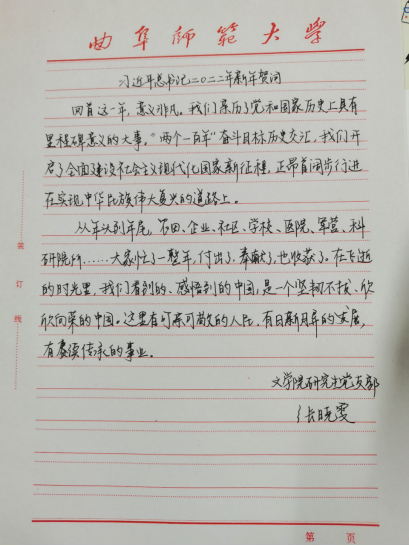 曲阜师范大学
习近平总书记二〇二二年新年贺词
回首这一年，意义非凡。我们亲历了党和国家历史上具有
里程碑意义的大事。“两个一百年”奋斗目标历史交汇，我们开
启了全面建设社会主义现代化国家新征程，正昂首阔步行进
在实现中华民族伟大复兴的道路上。
从年头到年尾，农田、企业、社区、学校、医院、军营、科
研院所……大家忙了一整年，付出了，奉献了，也收获了。在飞逝
的时光里，我们看到的、感悟到的中国，是一个坚韧不拔、欣
欣向荣的中国。这里有可亲可敬的人民，有日新月异的发展，
有赓续传承的事业。
文学院研究生党支部
张晓雯
装
订
线
第 页